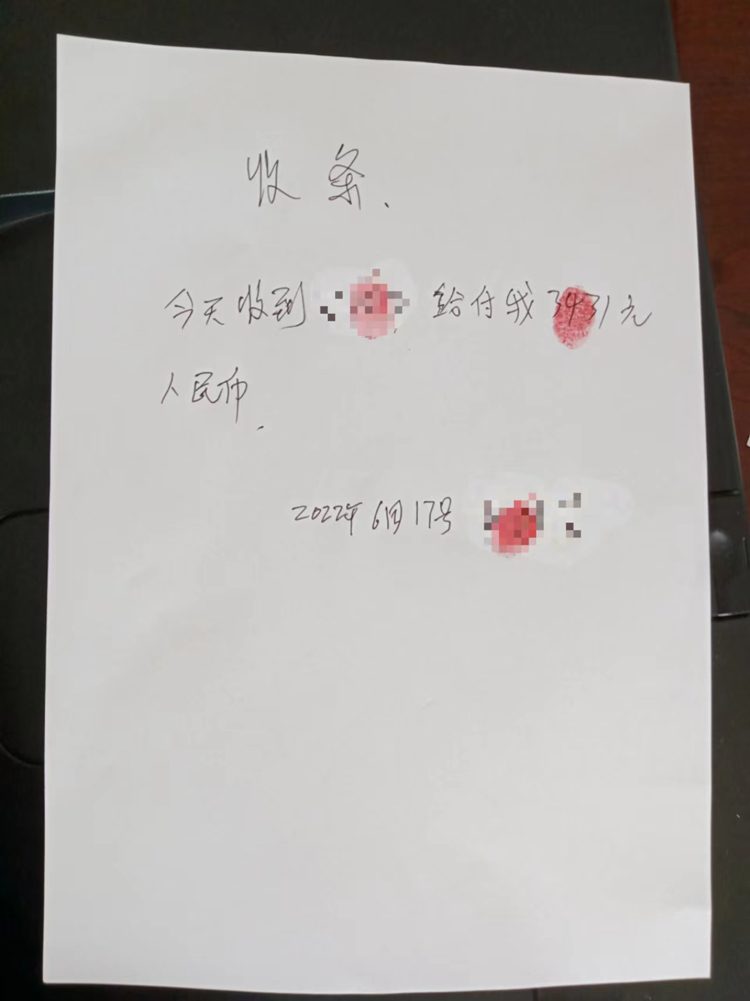 收条.
今天收到 给付我3431元
人民币.
2022年6月17号